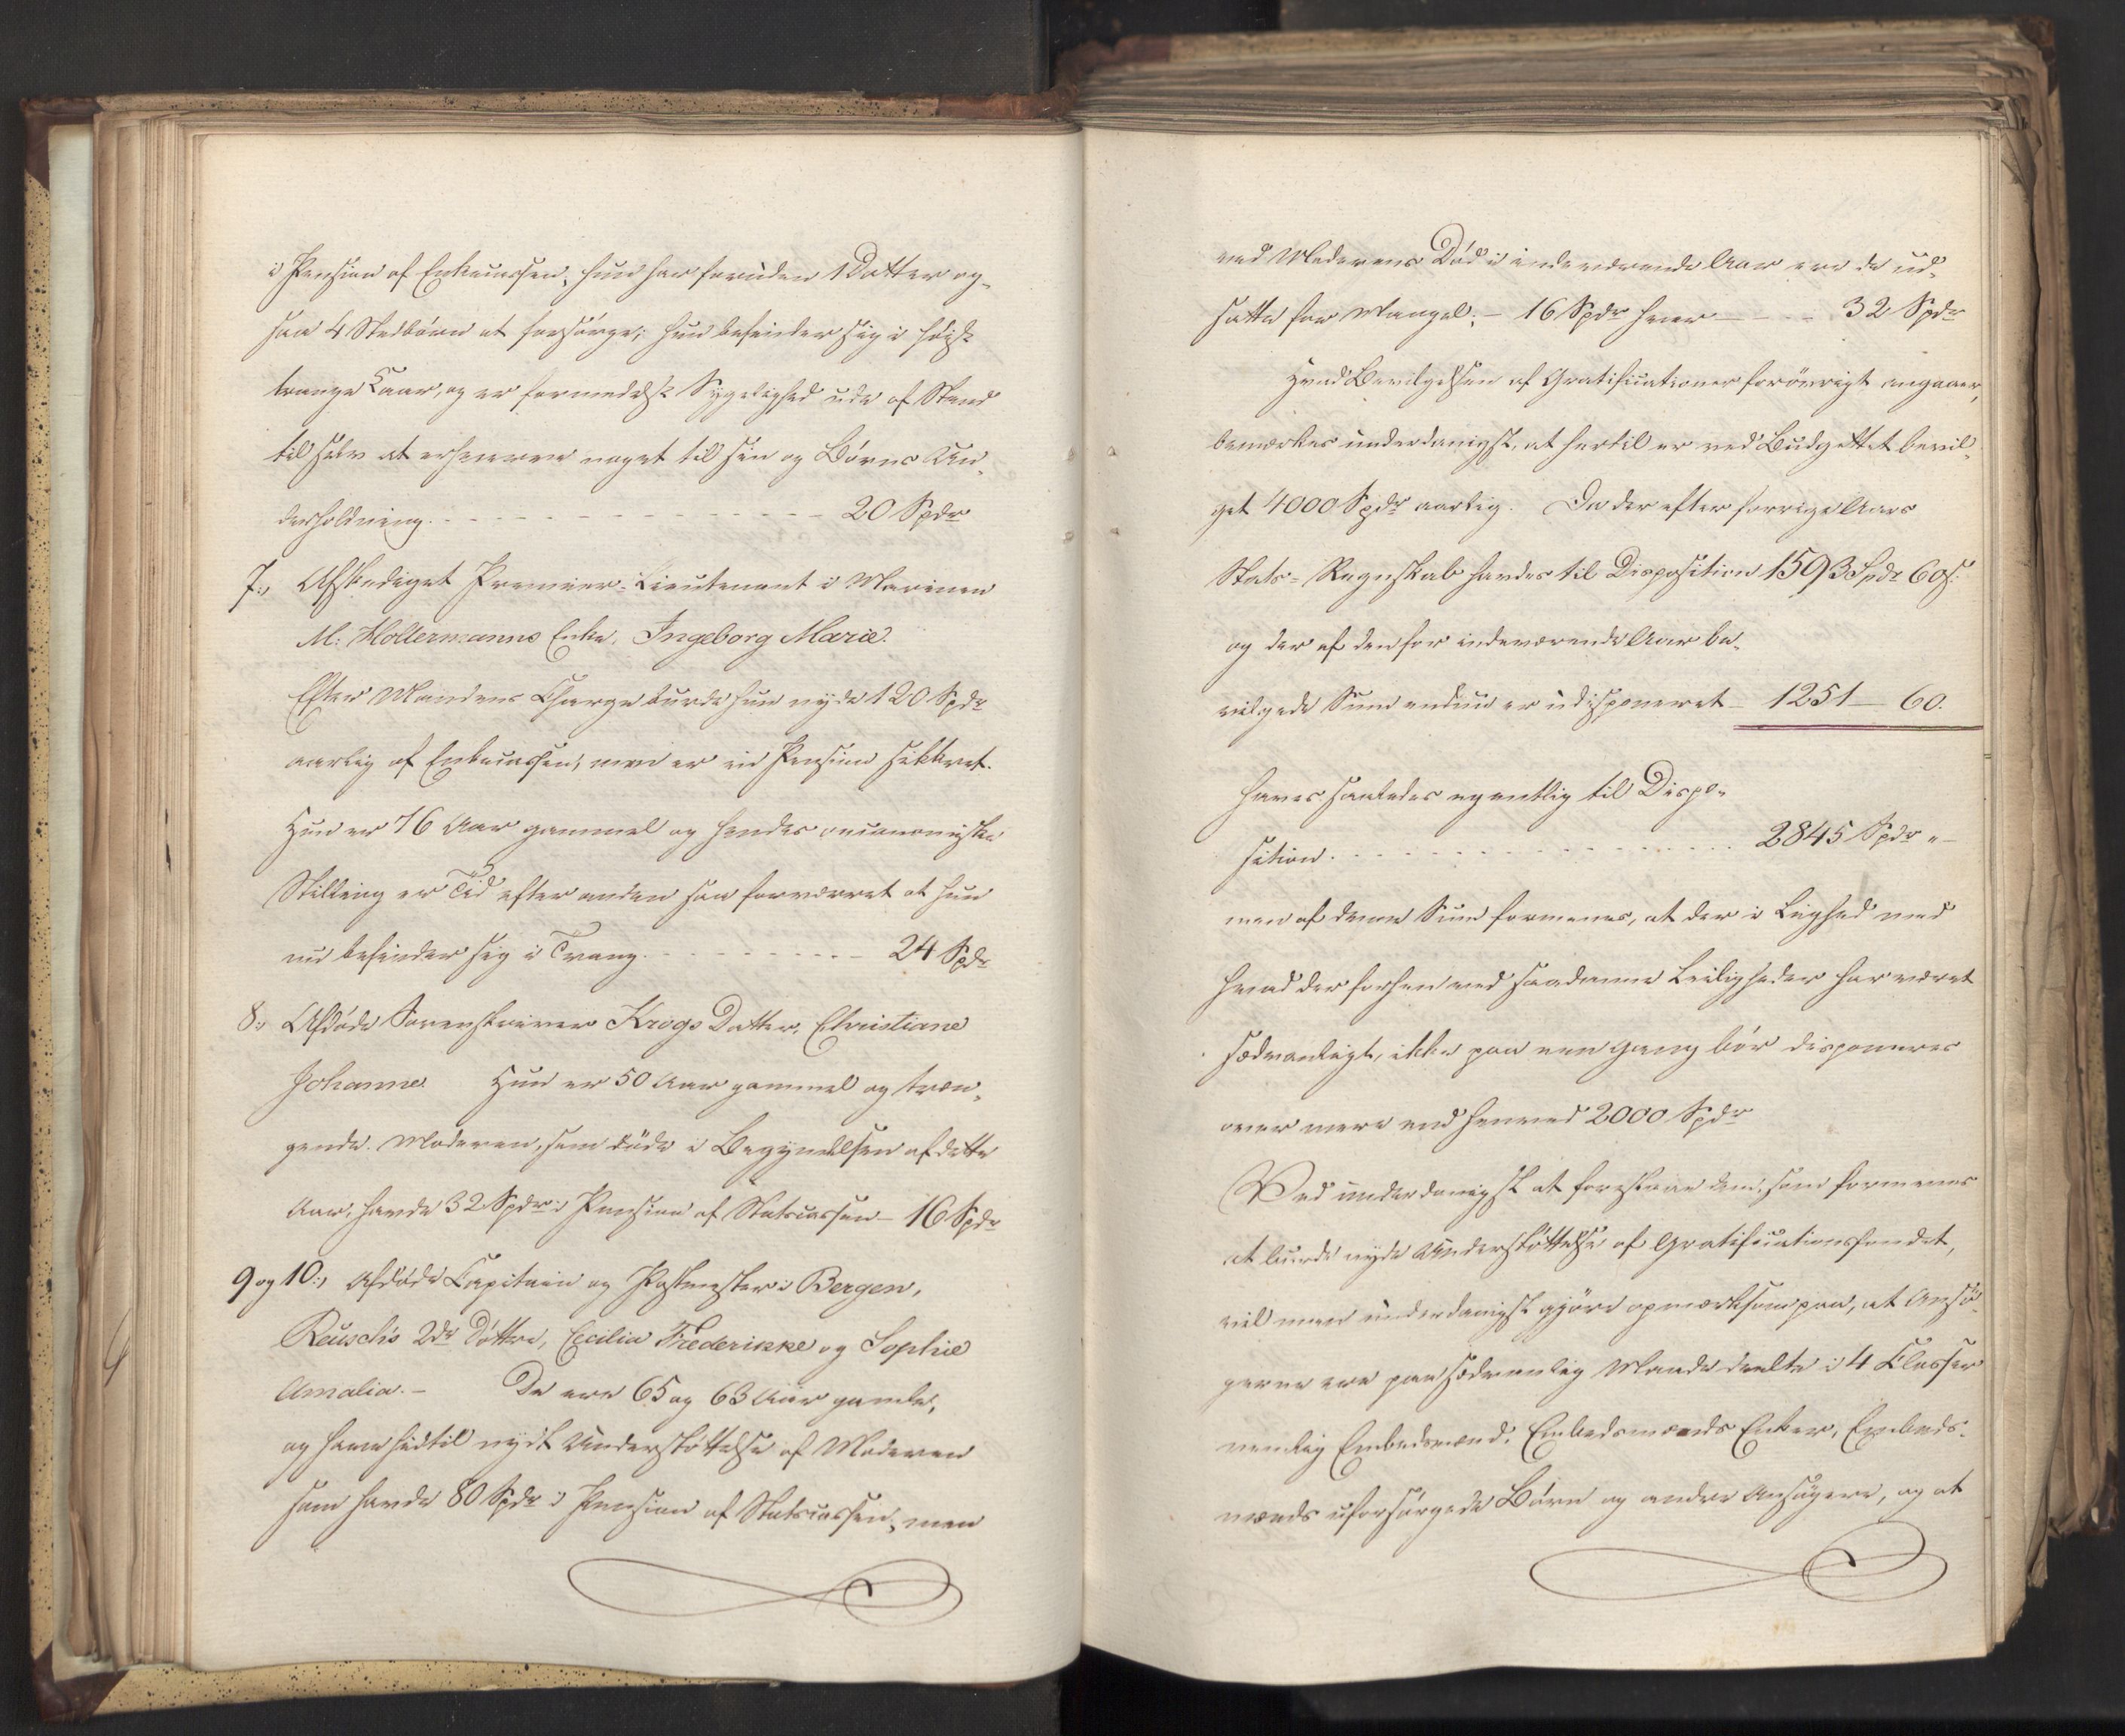 i Pension af Enkecassen; hun har foruden 1 Datter og-
saa 4 Stedbørn at forsørge; hun befinder sig i høist
trange Kaar, og er formedelst Sygelighed ude af Stand
til selv at erhverve noget til sin og Børns Un-
derholdning. - - - - - - - - - - - - - 20 Spdr
7:, Afskediget Premier-Lieutenant i Marinen
M: Holtermanns Enke, Ingeborg Marie.
Efter Mandens Charge burde hun nyde 120 Spdr
aarlig af Enkecassen, men er ei Pension sikkret.
Hun er 76 Aar gammel og hendes oeconomiske
Stilling er Tid efter anden saa forværret at hun
nu befinder sig i Trang. - - - - - - - - 24 Spdr
8:, Afdøde Sorenskriver Krogs Datter, Christiane
Johanne. Hun er 50 Aar gammel og træn-
gende. Moderen, som døde i Begyndelsen af dette
Aar, havde 32 Spdr i Pension af Statscassen - 16 Spdr
9 og 10:, Afdøde Capitain og Postmester i Bergen,
Reuschs 2de Døttre, Cecilia Frederikke og Sophie
Amalia. - De ere 65 og 63 Aar gamle,
og have hidtil nydt Understøttelse af Moderen
som havde 80 Spdr i Pension af Statscassen, men
ved Moderens Død i indeværende Aar ere de ud-
satte for Mangel; - 16 Spdr hver - - - - 32 Spdr
Hvad Bevilgelsen af Gratificationer forøvrigt angaaer,
bemærkes underdanigst, at hertil er ved Budgettet bevil-
get 4000 Spdr aarlig. Da der efter forrige Aars
Stats-Regnskab havdes til Disposition 1593 Spdr 60 s:
og der af den for indeværende Aar be-
vilgede Sum endnu er udisponeret - 1251 - 60.
haves saaledes egentlig til Dispo-
sition. - - - - - - - - - - - - - 2845 Spdr " -
men af denne Sum formenes, at der i Liighed med
hvad der forhen ved saadanne Leiligheder har været
sædvanligt, ikke paa een Gang bør disponeres
over mere end henved 2000 Spdr
Ved underdanigst at foreslaae dem, som formenes
at burde nyde Understøttelse af Gratificationsfondet,
vil man underdanigst gjøre opmærksom paa, at Ansø-
gerne ere paa sædvanlig Maade deelte i 4 Klasser
nemlig Embedsmænd, Embedsmænds Enker, Embeds-
mænds uforsørgede Børn og andre Ansøgere, og at